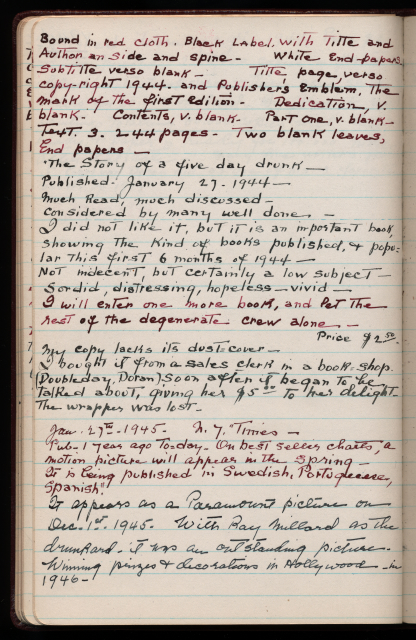 Bound in red cloth. Black Label, with Title and
Author on side and spine - White End papers
Subtitle verso blank - Title, page, verso
copy-right 1944 - and Publishers Emblem, The
mark of the first Edition - Dedication, v.
blank - Contents, v. blank - Part one, v. blank -
Text. 3. 244 pages - Two blank leaves,
End papers —
"The Story of a five day drunk —
Published January 27 - 1944 —
Much Read, much discussed -
Considered by many well done -
I did not like it, but it is an important book,
showing the kind of books published, & popu-
lar this first 6 months of 1944 —
Not indecent, but certainly a low subject -
Sordid, distressing, hopeless - vivid —
I will enter one more book, and let the
rest of the degenerate crew alone -
Price $2.50.
My copy lacks its dust cover —
I bought it from a sales clerk in a book shop.
(Doubleday, Doran) Soon after it began to be
talked about, giving her $5.00 to her delight -
The wrapper was lost -
Jan. 27th - 1945 - N. Y. Times -
Pub - 1 year ago to-day - On best seller charts, a
motion picture will appear in the Spring —
It is being published in Swedish, Portugueese,
Spanish!
It appears as a Paramount picture on
Dec. 1st. 1945 - With Ray Milland as the
drunkard - it was an outstanding picture -
Winning prizes & decorations in Hollywood - in
1946 -